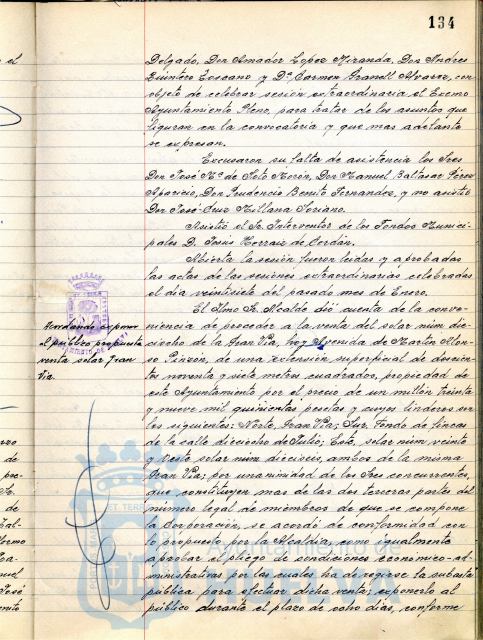 134
Delgado, Don Amador Lopez Miranda, Don Andres
Quintero Toscano y Dª Carmen Granell Alvarez, con
objeto de celebrar sesión extraordinaria el Excmo
Ayuntamiento Pleno, para tratar de los asuntos que
figuran en la convocatoria y que mas adelante
se expresan.
Excusaron su falta de asistencia los Sres
Don José Mª de Soto Morón, Don Manuel Baltasar Pérez
Aparicio, Don Prudencio Benito Fernandez, y no asistió
Don José Luiz Millana Soriano.
Asistió el Sr. Interventor de los Fondos Munici-
pales D. Jesús Herraiz de Cerdán.
Abierta la sesión fueron leidas y aprobadas
las actas de las sesiones extraordinarias celebradas
el dia veintisiete del pasado mes de Enero.
El Ilmo Sr. Alcalde dió cuenta de la conve-
niencia de proceder a la venta del solar núm die-
ciocho de la Gran Via, hoy Avenida de Martin Alon-
so Pinzon, de una extensión superficial de doscien-
tos noventa y siete metros cuadrados, propiedad de
este Ayuntamiento por el precio de un millón treinta
y nueve mil quinientas pesetas y cuyos linderos son
los siguientes: Norte, Gran Via; Sur, Fondo de fincas
de la calle dieciocho de Julio; Este, solar núm veinte
y Oeste solar núm dieciseis, ambos de la misma
Gran Via; por unanimidad de los Sres concurrentes,
que constituyen mas de las dos terceras partes del
número legal de miembros de que se compone
la Corporación, se acordó de conformidad con
lo propuesto por la Alcaldia, como igualmente
aprobar el pliego de condiciones económico-ad-
ministrativas por las cuales ha de regirse la subasta
pública para efectuar dicha venta; exponerlo al
público durante el plazo de ocho dias, conforme
exponer
el público propuesta
venta solar Gran
Via.
Ayuntamiento de